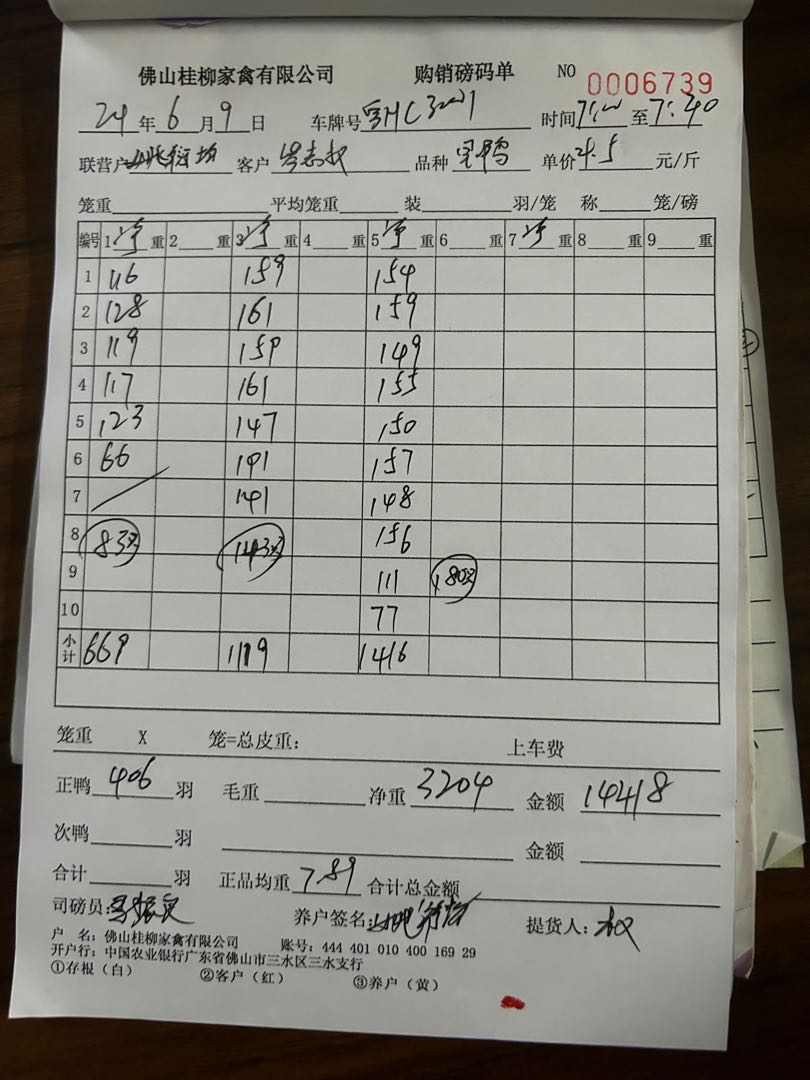 佛山桂柳家禽有限公司 购销磅码单 NO 0006739
24年6月9日 车牌号 时间 至7:40
联营户 客户 品种 鸭 单价4.5元/斤
笼重 平均笼重 装 羽/笼 称 笼/磅
编号 1净重 2 重 3净重 4 重 5净重 6 重 7净重 8 重 9 重
1 116 159 154
2 128 161 159
3 119 159 149
4 117 161 155
5 123 147 150
6 66 191 157
7 141 148
8 83只 143只 156
9 111 180只
10 77
小计 669 1119 1416
笼重 X 笼=总皮重: 上车费
正鸭406羽 毛重 净重3204 金额14418
次鸭 羽 金额
合计 羽 正品均重7.89 合计总金额
司磅员: 养户签名: 提货人:权
户 名:佛山桂柳家禽有限公司 账号:444 401 010 400 169 29
开户行:中国农业银行广东省佛山市三水区三水支行
①存根(白) ②客户(红) ③养户(黄)